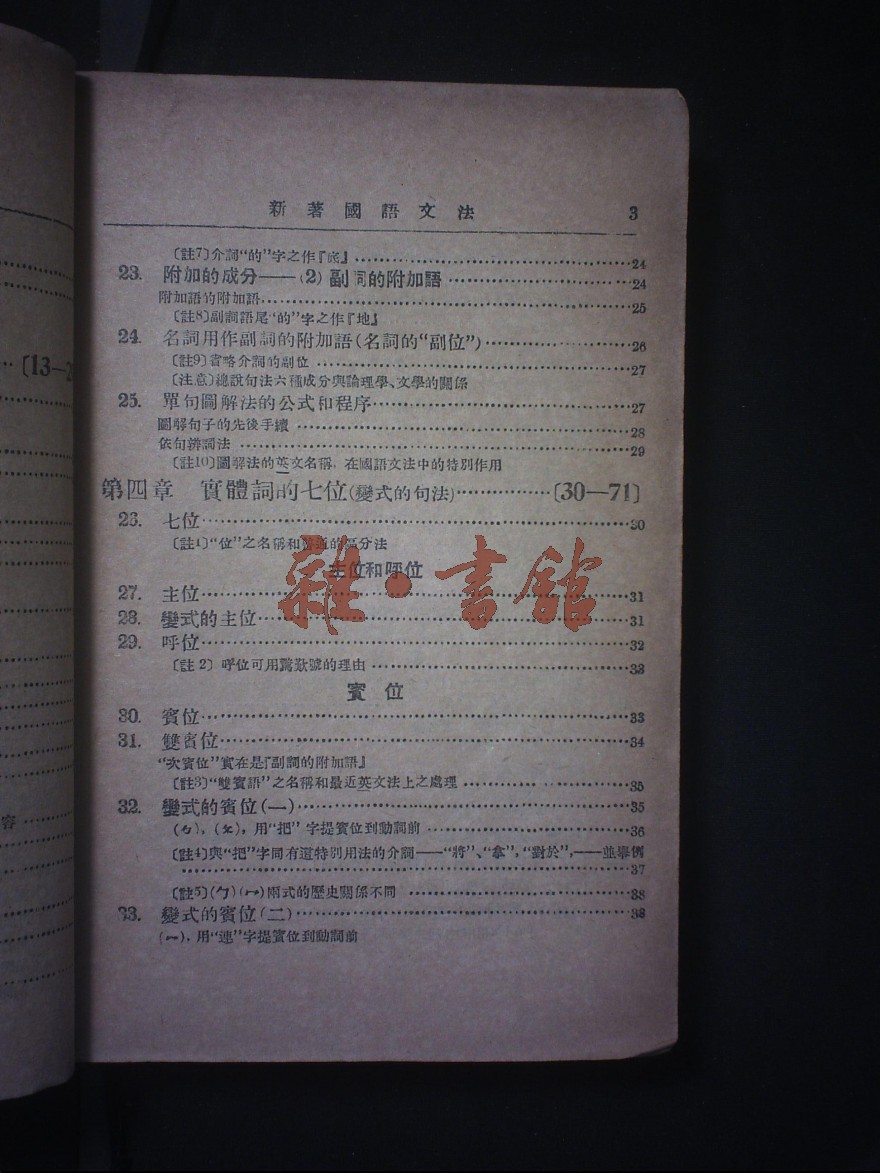 [13—2
容
新著國語文法 3
〔註7〕介詞“的”字之作『底』 24
23. 附加的成分——(2) 副詞的附加語 24
附加語的附加語 25
〔註8〕副詞語尾“的”字之作『地』
24. 名詞用作副詞的附加語(名詞的“副位”) 26
〔註9〕省略介詞的副位 27
〔注意〕總說句法六種成分與論理學、文學的關係
25. 單句圖解法的公式和程序 27
圖解句子的先後手續 28
依句辨詞法 29
〔註10〕圖解法的英文名稱，在國語文法中的特別作用
第四章 實體詞的七位(變式的句法) [30—71]
26. 七位 30
〔註1〕“位”之名稱和普通的區分法
主位和呼位
27. 主位 31
28. 變式的主位 31
29. 呼位 32
〔註2〕呼位可用驚歎號的理由 33
賓位
30. 賓位 33
31. 雙賓位 34
“次賓位”實在是『副詞的附加語』
〔註3〕“雙賓語”之名稱和最近英文法上之處理 35
32. 變式的賓位(一) 35
(ㄅ)，(ㄆ)，用“把”字提賓位到動詞前 36
〔註4〕與“把”字同有這特別用法的介詞——“將”、“拿”，“對於”，——並舉例
37
〔註5〕(ㄅ)(ㄇ)兩式的歷史關係不同 38
33. 變式的賓位(二) 38
(ㄇ)，用“連”字提賓位到動詞前
雜·書館